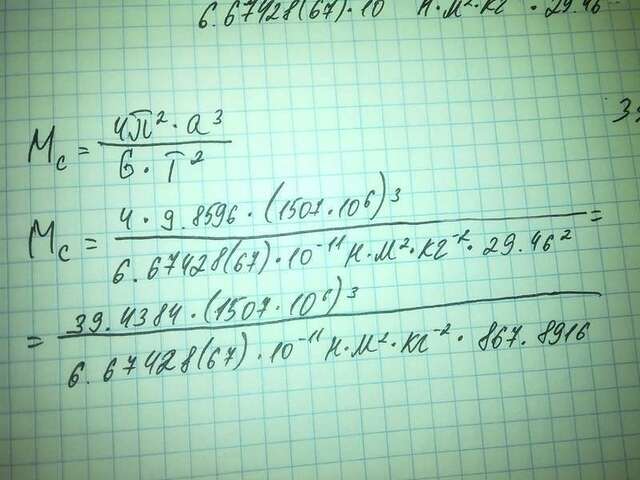 6.67428(67)·10 Н·м²·кг ·29.46
M_c = 4π²·a³ / G·T²
3
M_c = 4·9.8596·(1507·10⁶)³ / 6.67428(67)·10⁻¹¹ Н·м²·кг⁻²·29.46² =
= 39.4384·(1507·10⁶)³ / 6.67428(67)·10⁻¹¹ Н·м²·кг⁻²·867.8916